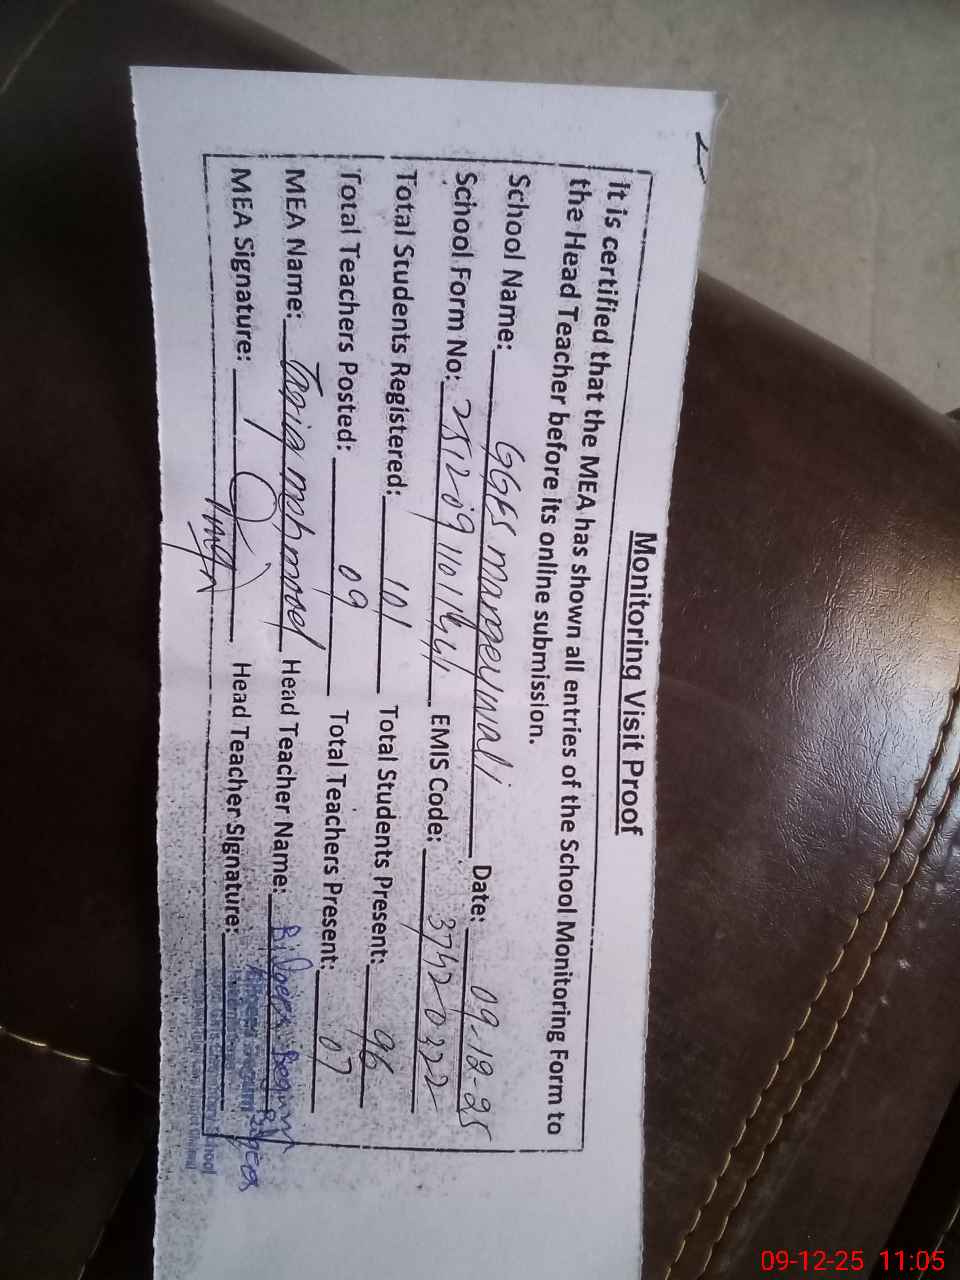 Monitoring Visit Proof
It is certified that the MEA has shown all entries of the School Monitoring Form to
the Head Teacher before its online submission.
School Name: GGES Mangeywali Date: 09-12-25
School Form No: EMIS Code: 37420322
Total Students Registered: 101 Total Students Present: 96
Total Teachers Posted: 09 Total Teachers Present: 07
MEA Name: Mehmood Head Teacher Name: Bilqees Begum
MEA Signature: Head Teacher Signature:
09-12-25 11:05